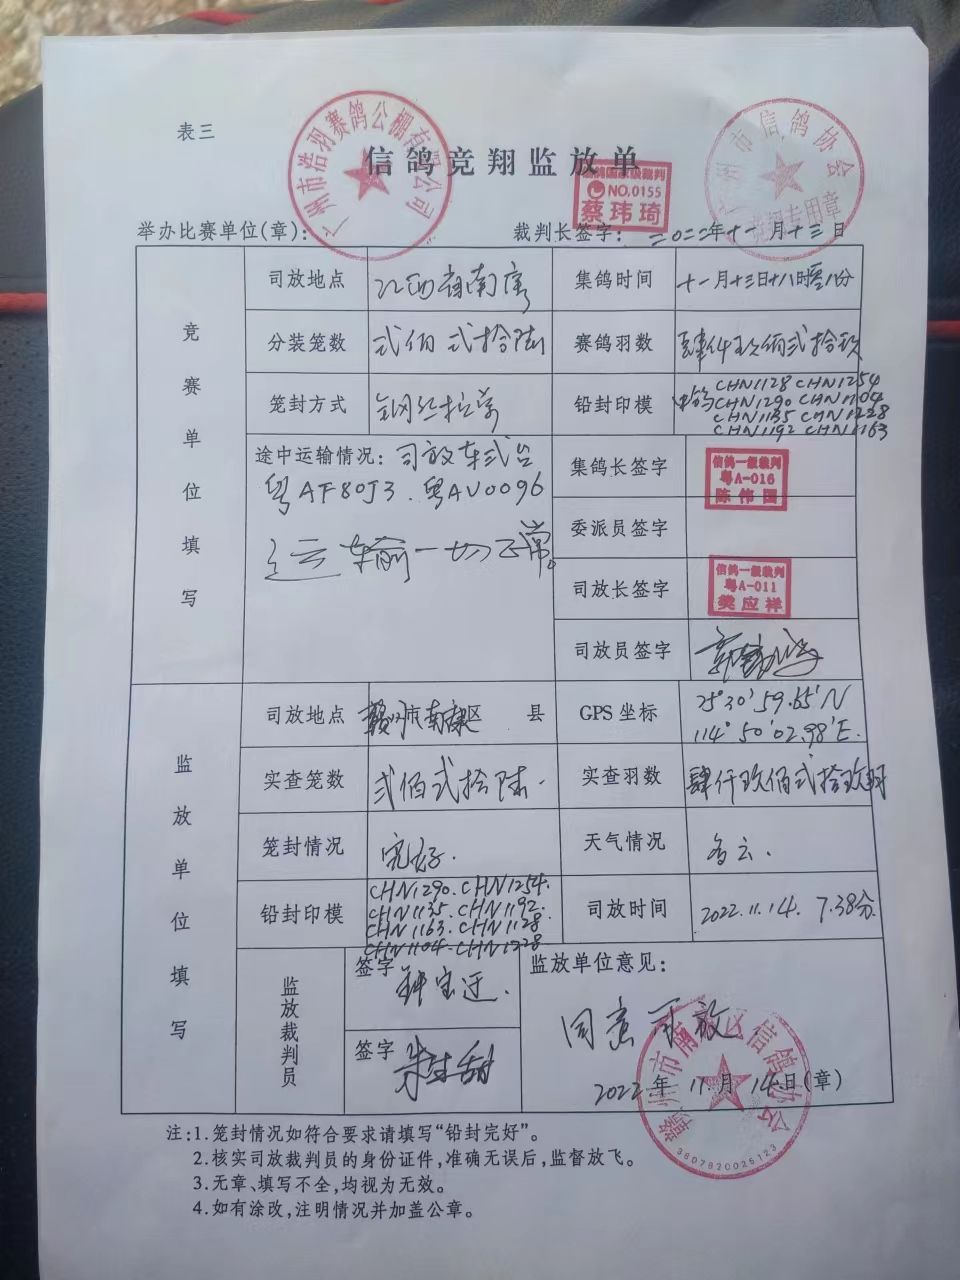 表三
广州市浩羽赛鸽公棚有限公司
广州市信鸽协会
竞翔专用章
信鸽竞翔监放单
信鸽国家级裁判
NO.0155
蔡玮琦
举办比赛单位(章):
裁判长签字:
二〇二二年十一月十三日
竞赛单位填写
司放地点
江西省南康
集鸽时间
十一月十三日十八时零八分
分装笼数
弍佰弍拾陆
赛鸽羽数
肆仟玖佰弍拾玖
笼封方式
钢丝拉
铅封印模
中鸽 CHN1128 CHN1254
CHN1290 CHN1104
CHN1135 CHN1228
CHN1192 CHN1163
途中运输情况: 司放车弍台
粤AF80J3. 粤AV0096
运输一切正常。
集鸽长签字
信鸽一级裁判
粤A-016
陈伟国
委派员签字
司放长签字
信鸽一级裁判
粤A-011
樊应祥
司放员签字
监放单位填写
司放地点
赣州市南康区 县
GPS坐标
25°30'59.65'N
114°50'02.98'E.
实查笼数
弍佰弍拾陆.
实查羽数
肆仟玖佰弍拾玖羽
笼封情况
完好.
天气情况
多云.
铅封印模
CHN1290. CHN1254.
CHN1135. CHN1192.
CHN1163. CHN1128.
CHN1104. CHN1228
司放时间
2022.11.14. 7.38分
监放裁判员
签字
签字
监放单位意见:
同意司放
2022年11月14日(章)
赣州市南康区信鸽协会
3607820025123
注:1.笼封情况如符合要求请填写“铅封完好”。
2.核实司放裁判员的身份证件,准确无误后,监督放飞。
3.无章、填写不全,均视为无效。
4.如有涂改,注明情况并加盖公章。